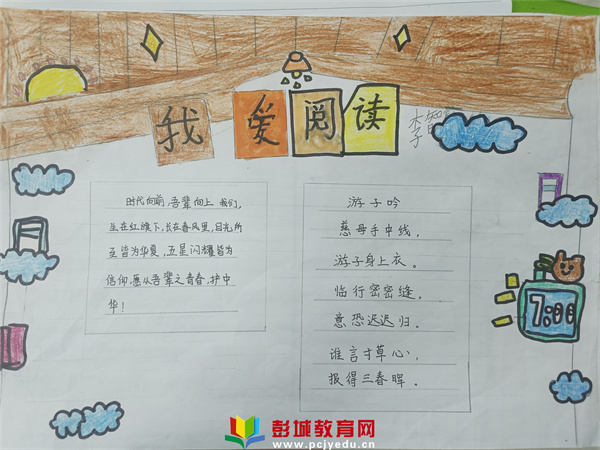 我爱阅读
时代向前,吾辈向上 我们,
生在红旗下,长在春风里,目光所
至皆为华夏,五星闪耀皆为
信仰,愿从吾辈之青春,护中
华!
游子吟
慈母手中线,
游子身上衣。
临行密密缝,
意恐迟迟归。
谁言寸草心,
报得三春晖。
7:00
彭城教育网
www.pcjyedu.cn